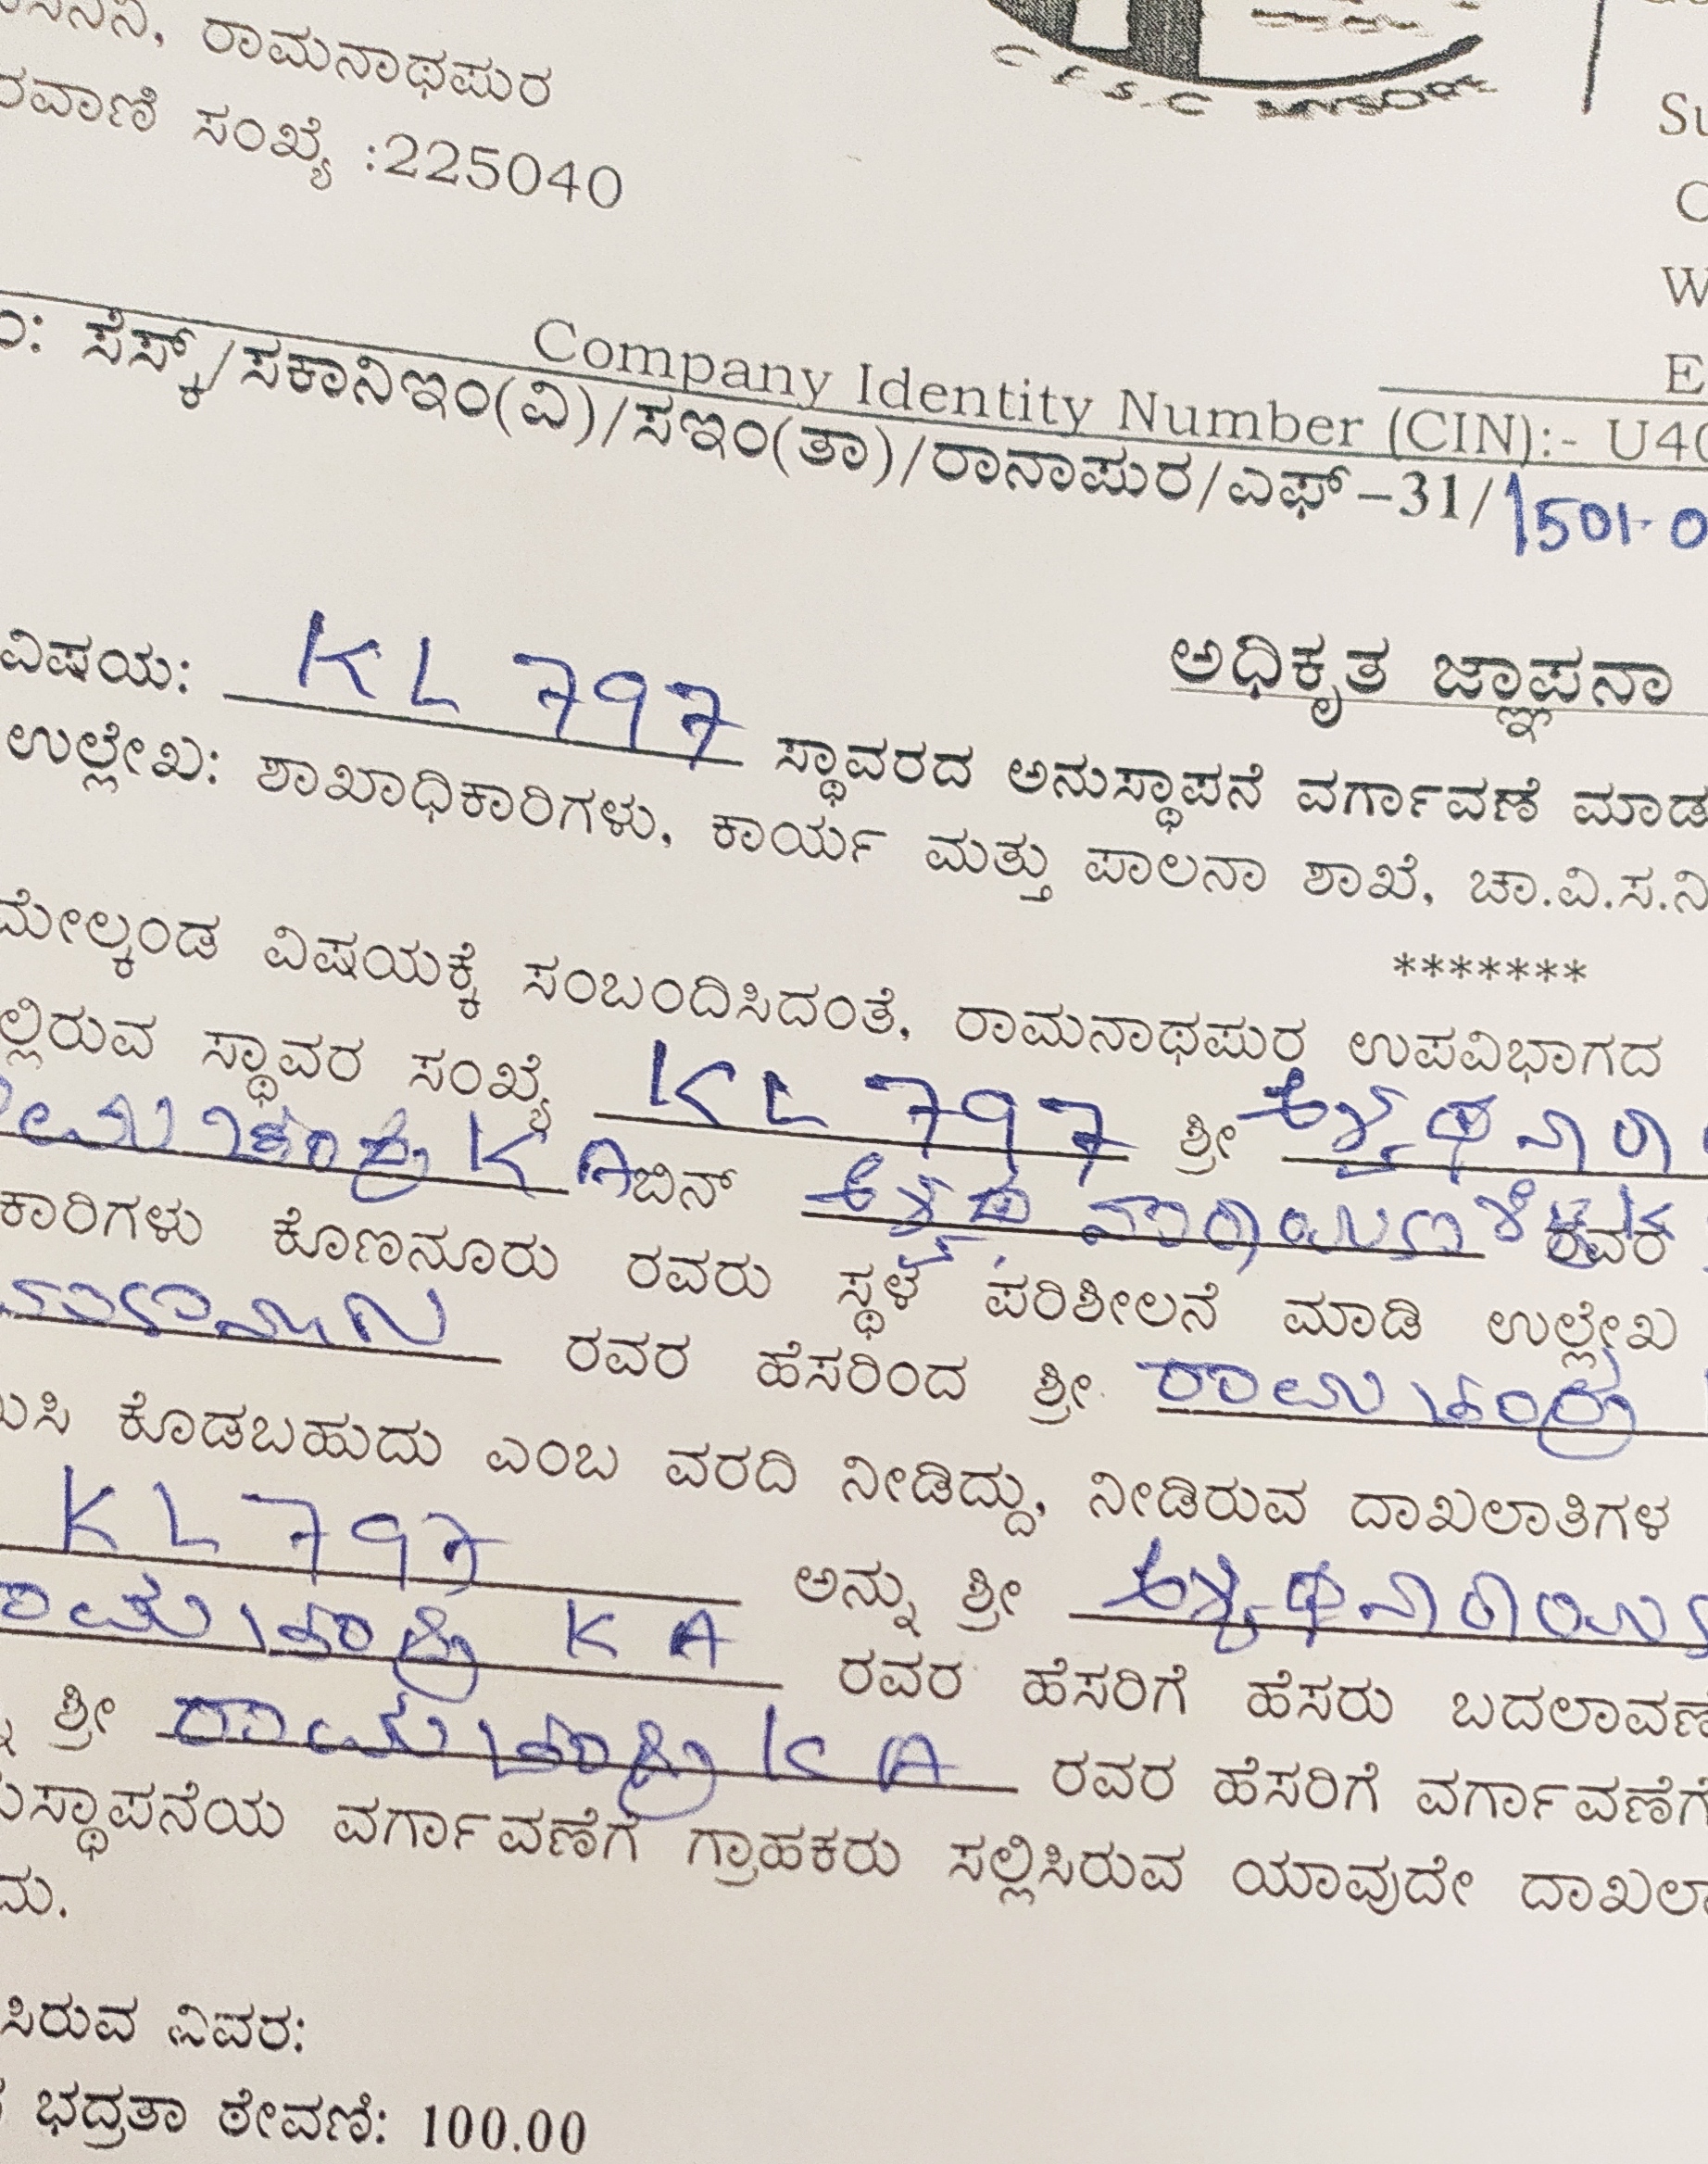 ರಾಮನಾಥಪುರ
ಸಂಖ್ಯೆ :225040
C E S C MYSORE
Su
C
W
E
Company Identity Number (CIN):- U40
ಸೆಸ್ಕ್/ಸಕಾನಿಇಂ(ವಿ)/ಸಇಂ(ತಾ)/ರಾನಾಪುರ/ಎಫ್-31/1501-0
ಅಧಿಕೃತ ಜ್ಞಾಪನಾ
ವಿಷಯ: KL 797 ಸ್ಥಾವರದ ಅನುಸ್ಥಾಪನೆ ವರ್ಗಾವಣೆ ಮಾಡ
ಉಲ್ಲೇಖ: ಶಾಖಾಧಿಕಾರಿಗಳು, ಕಾರ್ಯ ಮತ್ತು ಪಾಲನಾ ಶಾಖೆ, ಚಾ.ವಿ.ಸ.ನಿ
*******
ಮೇಲ್ಕಂಡ ವಿಷಯಕ್ಕೆ ಸಂಬಂದಿಸಿದಂತೆ, ರಾಮನಾಥಪುರ ಉಪವಿಭಾಗದ
ಲ್ಲಿರುವ ಸ್ಥಾವರ ಸಂಖ್ಯೆ KL 797 ಶ್ರೀ ಅಶ್ವಥನಾರಾ
ಮಚಂದ್ರ K A ಬಿನ್ ಅಶ್ವಥ ನಾರಾಯಣ ಕೆ ರವರ
ಕಾರಿಗಳು ಕೊಣನೂರು ರವರು ಸ್ಥಳ ಪರಿಶೀಲನೆ ಮಾಡಿ ಉಲ್ಲೇಖ
ನಾರಾಯಣ ರವರ ಹೆಸರಿಂದ ಶ್ರೀ. ರಾಮಚಂದ್ರ
ಯಿಸಿ ಕೊಡಬಹುದು ಎಂಬ ವರದಿ ನೀಡಿದ್ದು, ನೀಡಿರುವ ದಾಖಲಾತಿಗಳ
KL 797 ಅನ್ನು ಶ್ರೀ ಅಶ್ವಥನಾರಾಯಣ
ರಾಮಚಂದ್ರ K A ರವರ ಹೆಸರಿಗೆ ಹೆಸರು ಬದಲಾವಣ
ಶ್ರೀ ರಾಮಚಂದ್ರ K A ರವರ ಹೆಸರಿಗೆ ವರ್ಗಾವಣೆಗೆ
ುಸ್ಥಾಪನೆಯ ವರ್ಗಾವಣೆಗೆ ಗ್ರಾಹಕರು ಸಲ್ಲಿಸಿರುವ ಯಾವುದೇ ದಾಖಲಾ
ದು.
ಸಿರುವ ವಿವರ:
ಭದ್ರತಾ ಠೇವಣಿ: 100.00